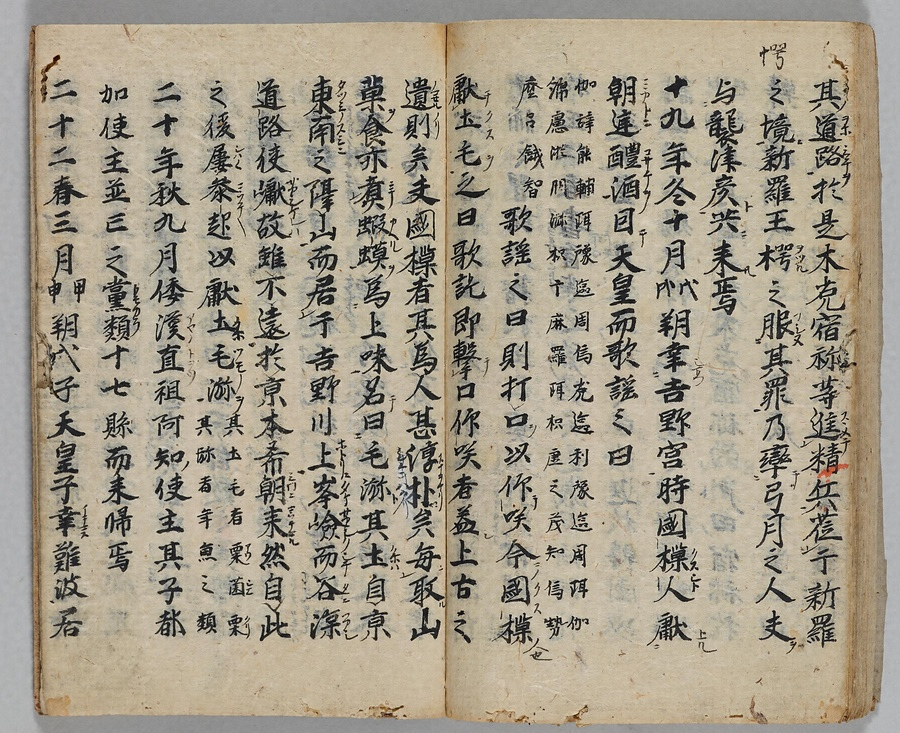 愕
其道路於是木菟宿祢等進精兵莅于新羅
之境新羅王愕之服其罪乃率弓月之人夫
与襲津彦共来焉
十九年冬十月戊戌朔幸吉野宮時國樔人獻
朝
醴酒因天皇而歌謡之曰
伽辞能輔珥豫區周塢菟區利豫區周珥伽
綿慮淤朋瀰枳于麻羅珥枳虚之茂知塢勢
磨呂餓智
歌謡之曰則打口以仰咲今國樔
獻土毛之日歌訖即擊口仰咲者蓋上古之
遺則矣夫國樔者其為人甚淳朴矣毎取山
菓食亦煮蝦蟆為上味名曰毛瀰其土自京
東南之隔山而居于吉野川上峯嶮而谷深
道路使巘故雖不遠於京本希朝来然自此
之後屡参赴以獻土毛瀰其土毛者栗菌栗
其祢者年魚之類
二十年秋九月倭漢直祖阿知使主其子都
加使主並己之黨類十七縣而来帰焉
二十二春三月甲申朔戊子天皇子幸難波居